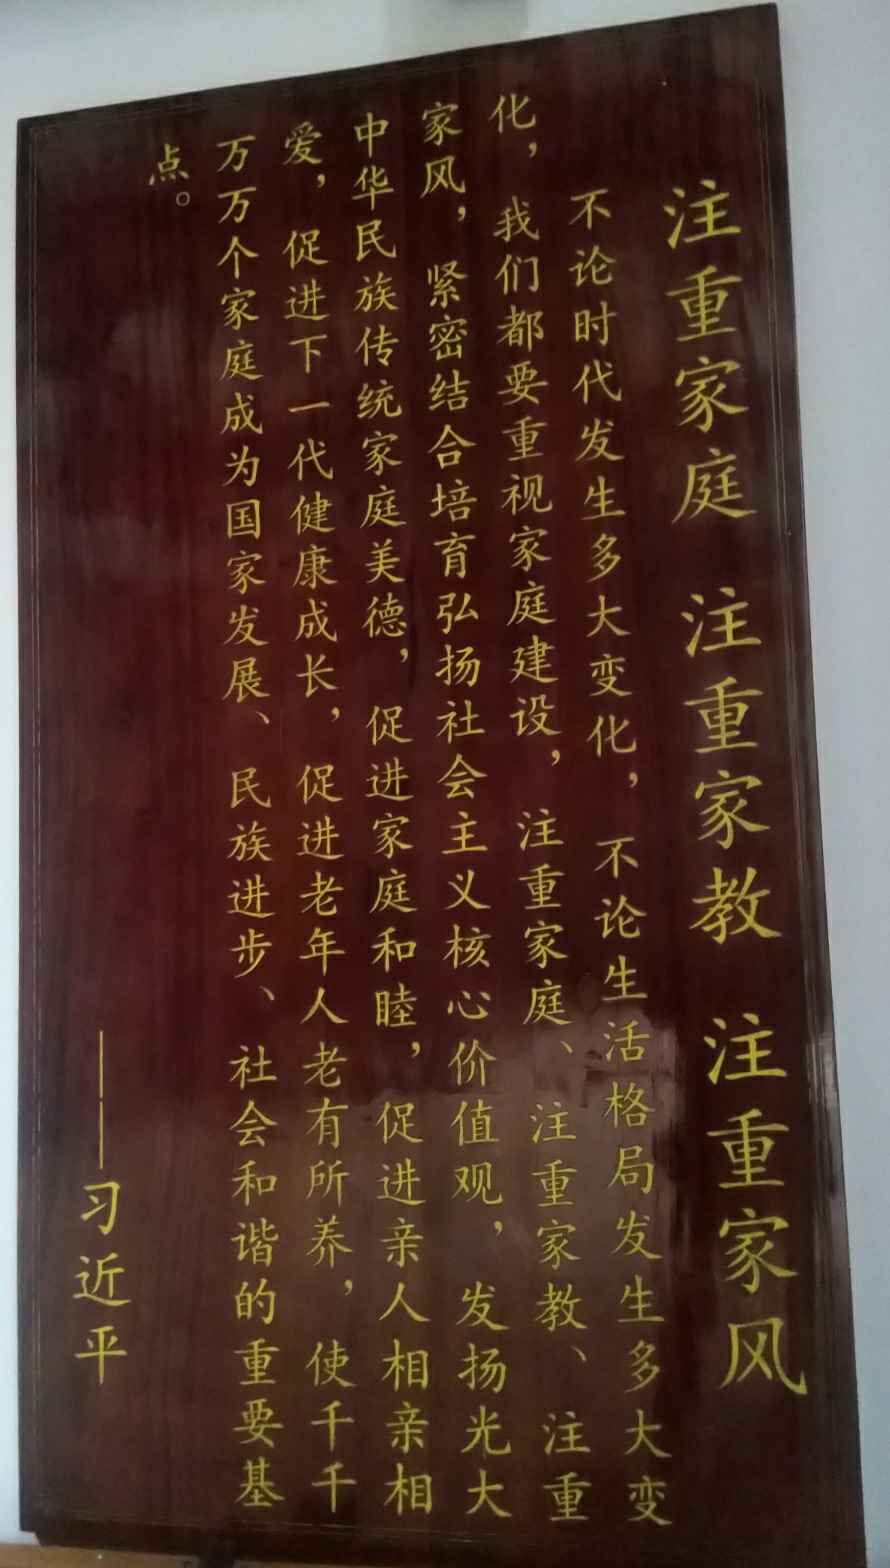 注重家庭 注重家教 注重家风
不论时代发生多大变化，不论生活格局发生多大变
化，我们都要重视家庭建设，注重家庭、注重家教、注重
家风，紧密结合培育弘扬社会主义核心价值观，发扬光大
中华民族传统家庭美德，促进家庭和睦，促进亲人相亲相
爱，促进下一代健康成长，促进老年人老有所养，使千千
万万个家庭成为国家发展、民族进步、社会和谐的重要基
点。
——习近平